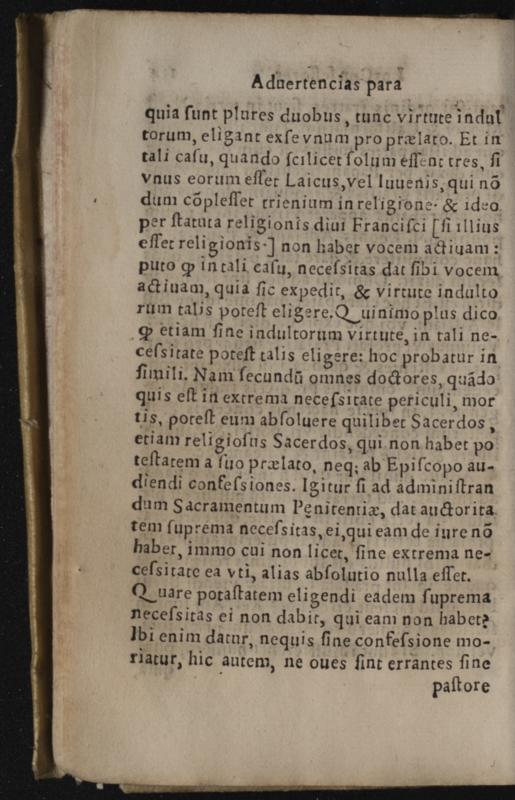 Aduertencias para
quia ſunt plures duobus, tunc virtute indul
torum, eligant exſe vnum pro prælato. Et in
tali caſu, quando ſcilicet ſolum eſſent tres, ſi
vnus eorum eſſet Laicus, vel Iuuenis, qui nõ
dum cõpleſſet trienium in religione. & ideo
per ſtatuta religionis diui Franciſci [ſi illius
eſſet religionis.] non habet vocem actiuam:
puto ꝙ in tali caſu, neceſsitas dat ſibi vocem
actiuam, quia ſic expedit, & virtute indulto
rum talis poteſt eligere. Quinimo plus dico
ꝙ etiam ſine indultorum virtute, in tali ne-
ceſsitate poteſt talis eligere: hoc probatur in
ſimili. Nam ſecundũ omnes doctores, quãdo
quis eſt in extrema neceſsitate periculi, mor
tis, poteſt eum abſoluere quilibet Sacerdos,
etiam religioſus Sacerdos, qui non habet po
teſtatem a ſuo prælato, neq; ab Epiſcopo au-
diendi confeſsiones. Igitur ſi ad adminiſtran
dum Sacramentum Pęnitentiæ, dat auctorita
tem ſuprema neceſsitas, ei, qui eam de iure nõ
habet, immo cui non licet, ſine extrema ne-
ceſsitate ea vti, alias abſolutio nulla eſſet.
Quare potaſtatem eligendi eadem ſuprema
neceſsitas ei non dabit, qui eam non habet?
Ibi enim datur, nequis ſine confeſsione mo-
riatur, hic autem, ne oues ſint errantes ſine
paſtore